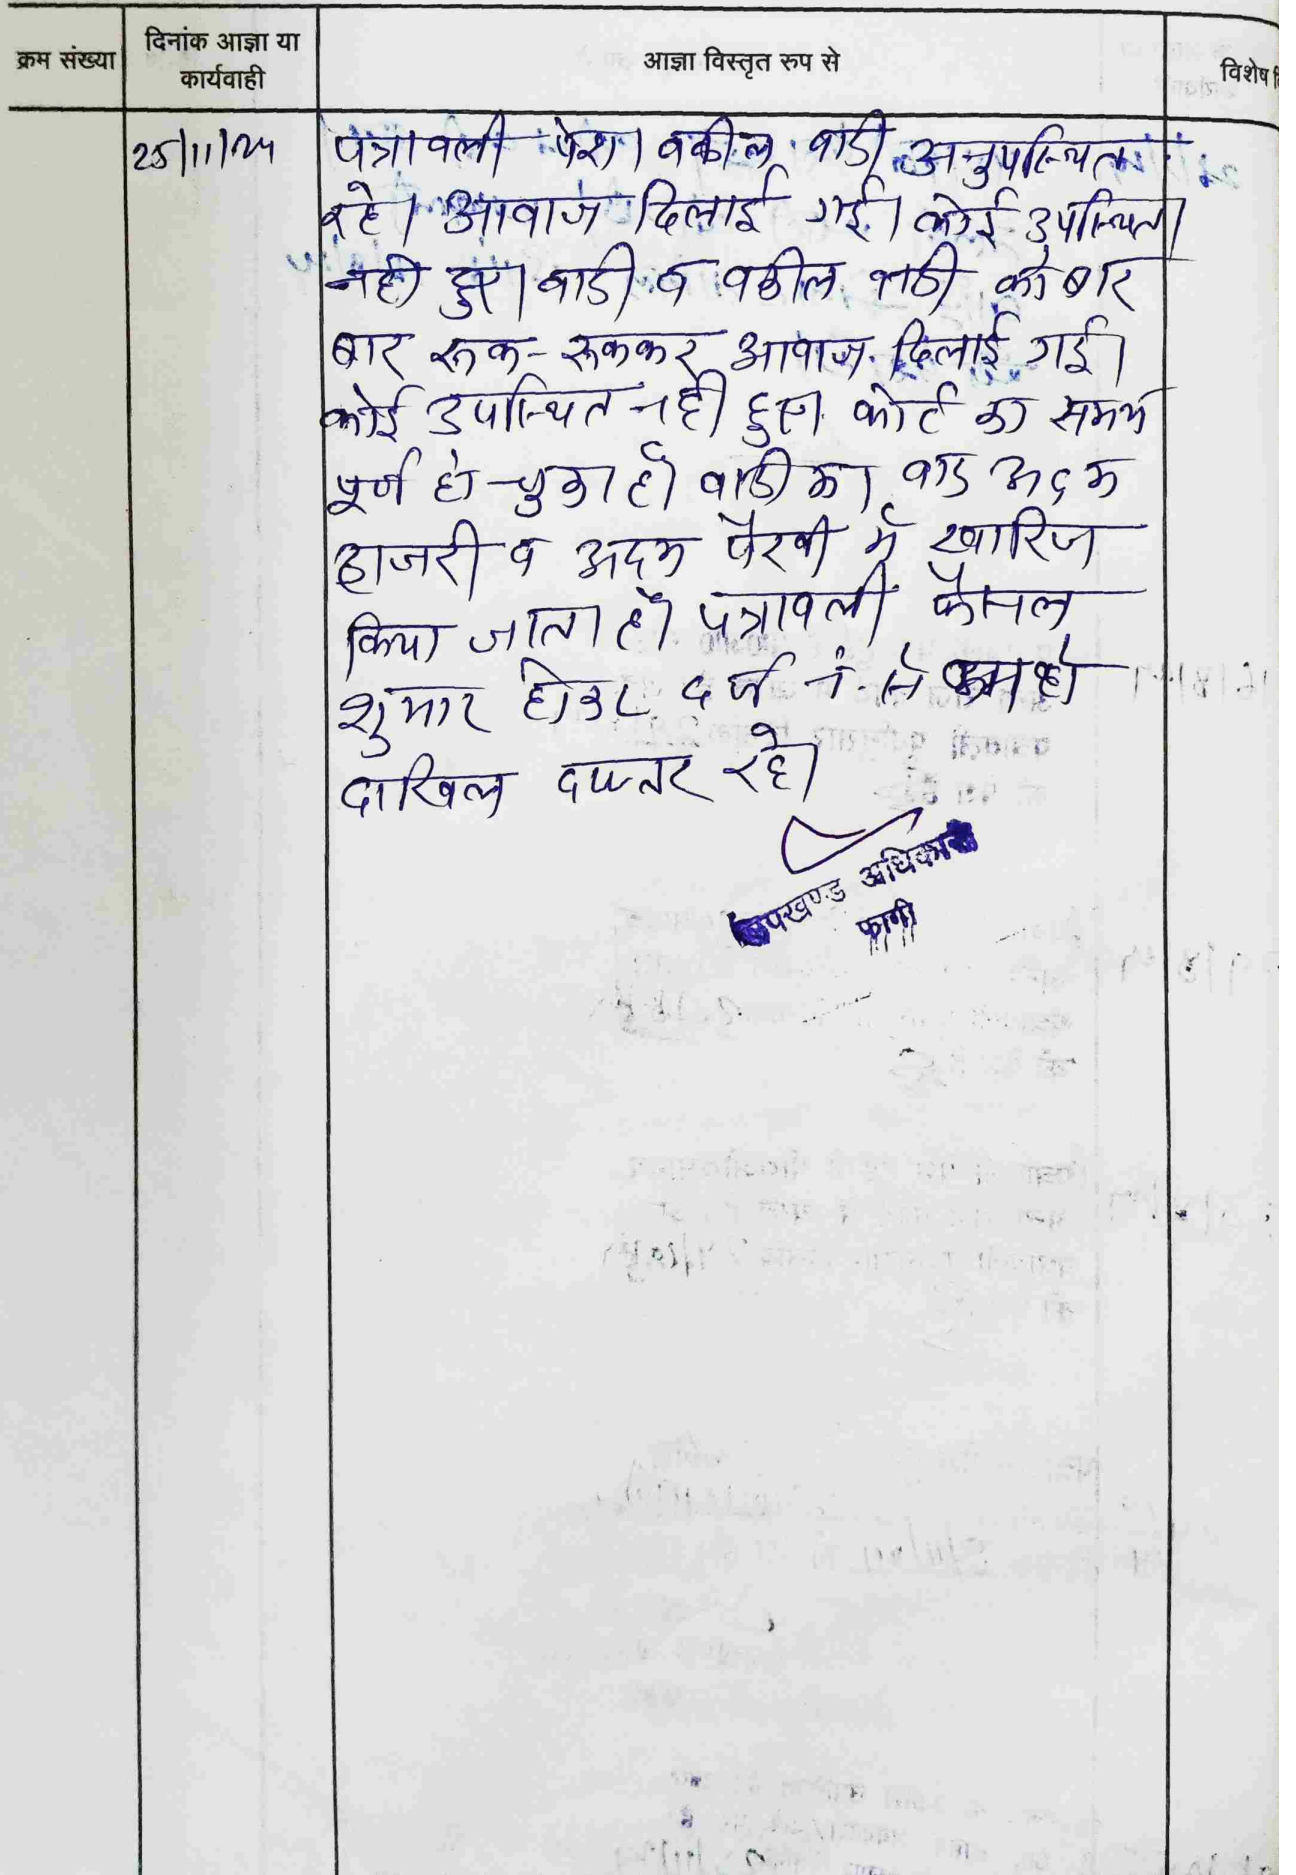 क्रम संख्या
दिनांक आज्ञा या
कार्यवाही
आज्ञा विस्तृत रुप से
विशेष
25/11/24
पत्रावली पेश। वकील वादी अनुपस्थित
रहे। आवाज दिलाई गई। कोई उपस्थित
नही हुए। वादी व वकील वादी को बार
बार रूक-रूककर आवाज दिलाई गई।
कोई उपस्थित नही हुए। कोर्ट का समय
पूर्ण हो चुका है। वादी का वाद अदम
हाजरी व अदम पैरवी में खारिज
किया जाता है। पत्रावली फैसल
शुमार होकर दर्ज नं. से कम हो
दाखिल दफ्तर रहे।
उपखण्ड अधिकारी
फागी